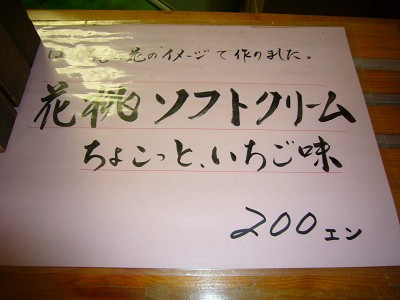 は の花のイメージで作りました。
花桃ソフトクリーム
ちょこっと、いちご味
200エン